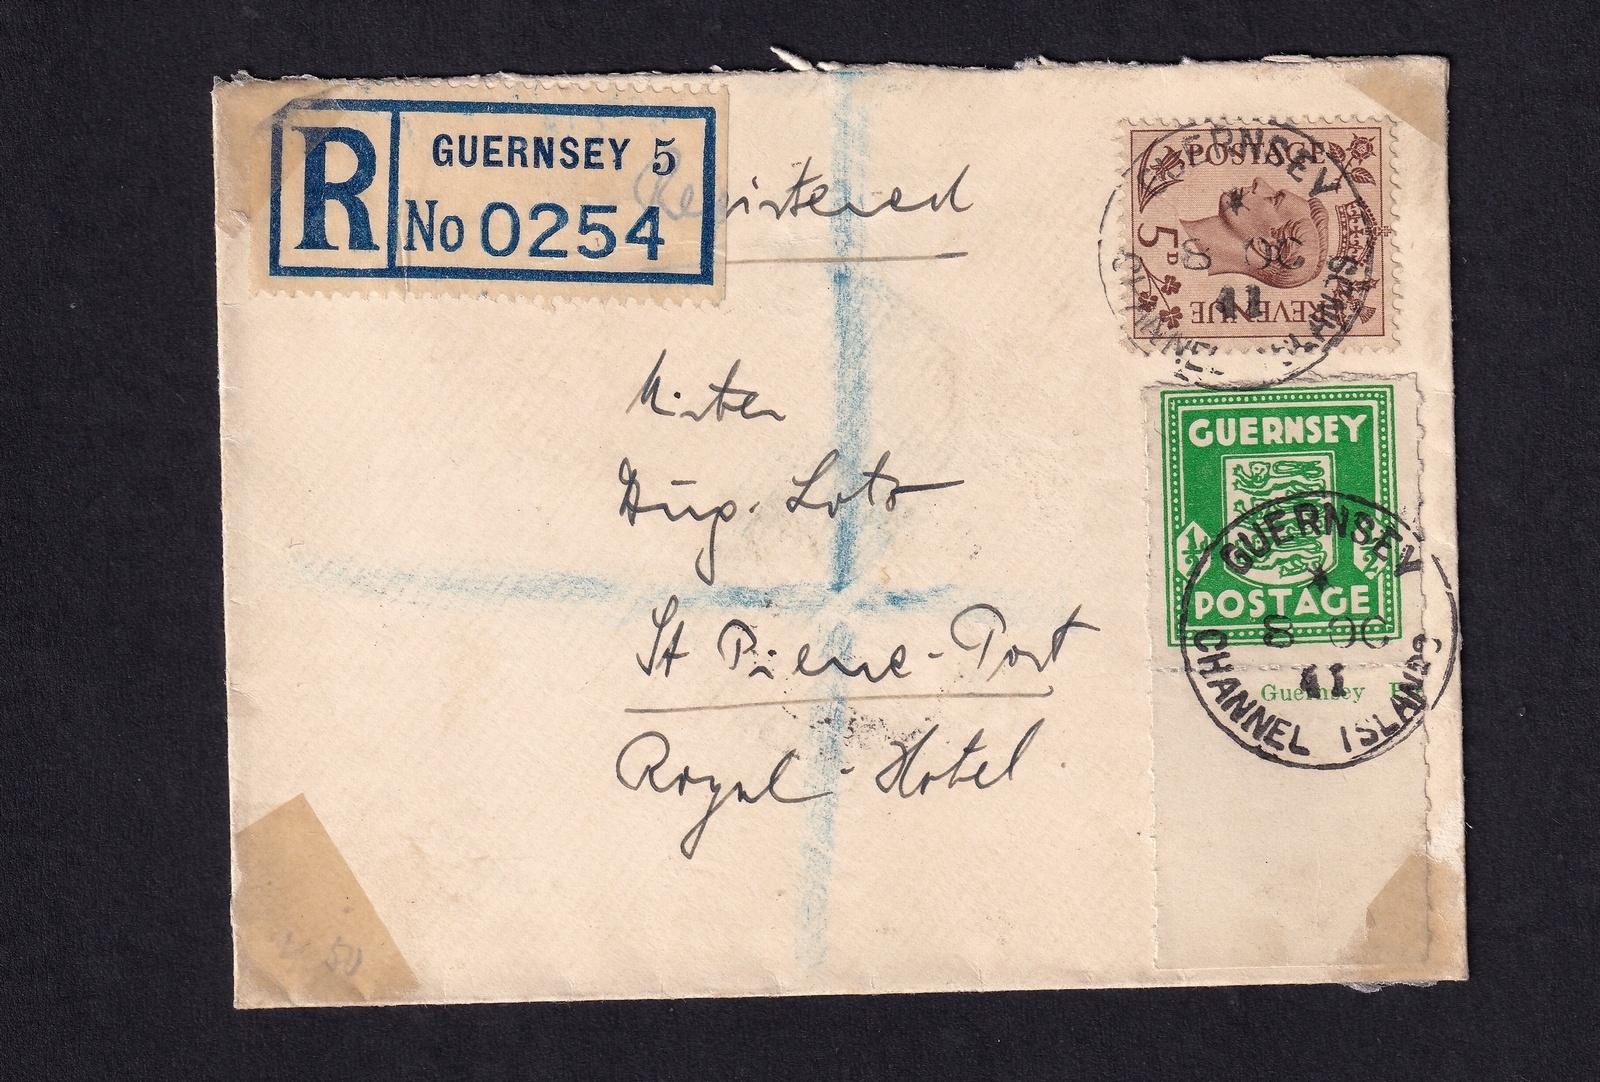 R GUERNSEY 5
No 0254
Registered
POSTAGE
5D
REVENUE
GUERNSEY
8 OC
41
CHANNEL ISLANDS
Mister
St Pierre-Port
Royal-Hotel.
GUERNSEY
1/2 1/2
POSTAGE
Guernsey
GUERNSEY
8 OC
41
CHANNEL ISLANDS
50